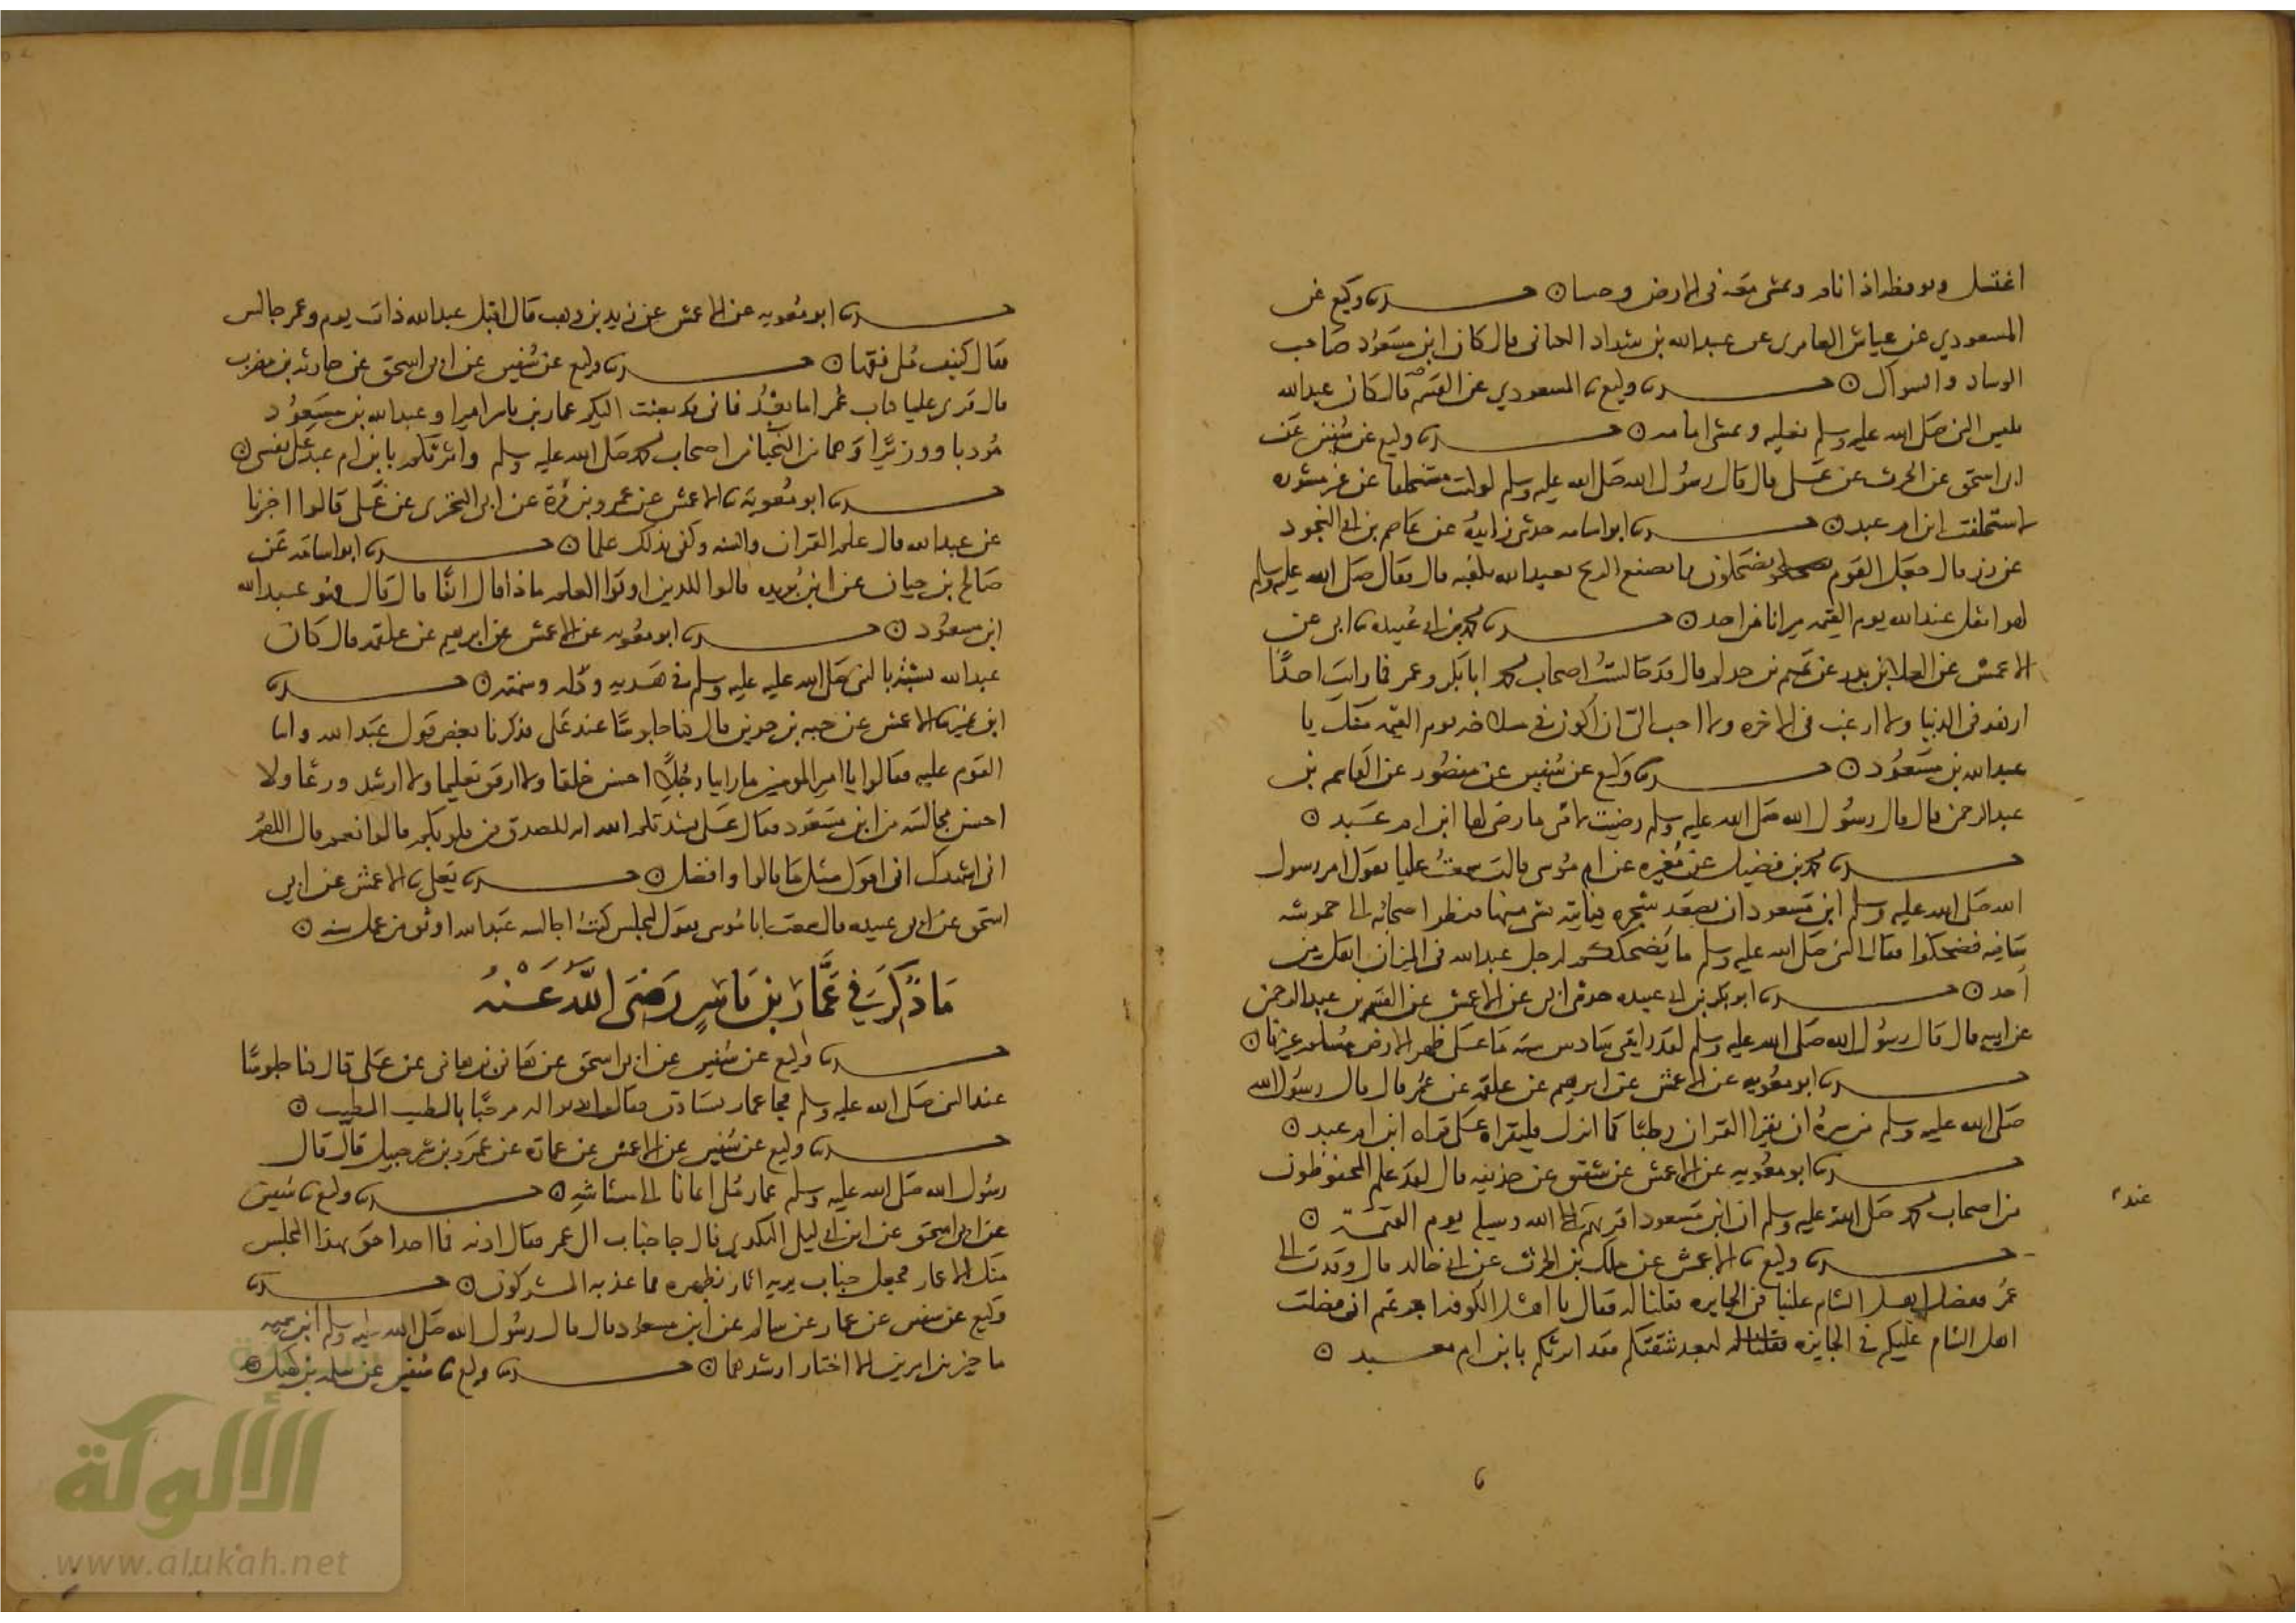 اغتسل ويوقظه اذا نام ويمشي معه في الارض وحشا ۞ حدثنا وكيع عن
المسعودي عن عياش العامري عن عبد الله بن شداد قال كان ابن مسعود صاحب
الوساد والسواك ۞ حدثنا وكيع نا المسعودي عن القسم قال كان عبد الله
يلبس النبي صلى الله عليه وسلم نعليه ويمشي امامه ۞ حدثنا وكيع عن سفين عن
ابي اسحق عن الحرث عن علي قال قال رسول الله صلى الله عليه وسلم لو كنت مستخلفا عن غير مشوره
لاستخلفت ابن ام عبد ۞ حدثنا ابو اسامه حدثني زايدة عن عاصم بن ابي النجود
عن زر قال جعل القوم يضحكون مما تصنع الريح بعبد الله تلفيه قال فقال صلى الله عليه وسلم
لهو اثقل عند الله يوم القيمه ميزانا من احد ۞ حدثنا محمد بن ابي عبيده نا ابي عن
الاعمش عن العلا بن بدر عن تميم بن حذلم قال قد جالست اصحاب محمد ابا بكر وعمر فما رايت احدا
ازهد في الدنيا ولا ارغب في الاخره ولا احب الي ان اكون في مسلاخه يوم القيمه منك يا
عبد الله بن مسعود ۞ حدثنا وكيع عن سفين عن منصور عن القاسم بن
عبد الرحمن قال قال رسول الله صلى الله عليه وسلم رضيت لامتي ما رضي لها ابن ام عبد ۞
حدثنا محمد بن فضيل عن مغيره عن ام موسى قالت سمعت عليا يقول امر رسول
الله صلى الله عليه وسلم ابن مسعود ان يصعد شجره فياتيه بشي منها فنظر اصحابه الى حموشه
ساقيه فضحكوا فقال النبي صلى الله عليه وسلم ما يضحككم لرجل عبد الله في الميزان اثقل من
احد ۞ حدثنا ابو بكر بن ابي عبيده حدثني ابي عن الاعمش عن القسم بن عبد الرحمن
عن ابيه قال قال رسول الله صلى الله عليه وسلم لقد رايتني سادس سته ما على ظهر الارض مسلم غيرنا ۞
حدثنا ابو معويه عن الاعمش عن ابرهيم عن علقمه عن عمر قال قال رسول الله
صلى الله عليه وسلم من سره ان يقرا القران رطبا كما انزل فليقراه على قراه ابن ام عبد ۞
حدثنا ابو معويه عن الاعمش عن شقيق عن حذيفه قال لقد علم المحفوظون
من اصحاب محمد صلى الله عليه وسلم ان ابن مسعود اقربهم الى الله وسيلة يوم القيمة ۞
عند
حدثنا وكيع نا الاعمش عن ملك بن الحرث عن ابي خالد قال وفدت الى
عمر ففضل اهل الشام علينا في الجايزه فقلنا له فقال يا اهل الكوفه اجزعتم اني فضلت
اهل الشام عليكم في الجايزه لبعد شقتكم فقد اثرتكم بابن ام عبد ۞
حدثنا ابو معويه عن الاعمش عن زيد بن وهب قال اقبل عبد الله ذات يوم وعمر جالس
فقال كنيف ملي فقها ۞ حدثنا وكيع عن سفين عن ابي اسحق عن حارثه بن مضرب
قال قري علينا كتاب عمر اما بعد فاني قد بعثت اليكم عمار بن ياسر اميرا وعبد الله بن مسعود
مودبا ووزيرا وهما من النجبا من اصحاب محمد صلى الله عليه وسلم واثرتكم بابن ام عبد على نفسي ۞
حدثنا ابو معوية نا الاعمش عن عمرو بن مرة عن ابي البختري عن علي قالوا اخبرنا
عن عبد الله قال علم القران والسنه وكفى بذلك علما ۞ حدثنا ابو اسامه عن
صالح بن حيان عن ابن بريده قالوا للذين اوتوا العلم ماذا قال انفا قال قال هو عبد الله
ابن مسعود ۞ حدثنا ابو معويه عن الاعمش عن ابرهيم عن علقمه قال كان
عبد الله يشبه بالنبي صلى الله عليه عليه وسلم في هديه ودله وسمته ۞ حدثنا
ابن نمير نا الاعمش عن حبه بن جوين قال كنا جلوسا عند علي فذكرنا بعض قول عبد الله واثنا
القوم عليه فقالوا يا امير المومنين ما راينا رجلا احسن خلقا ولا ارفق تعليما ولا ارشد ورعا ولا
احسن مجالسه من ابن مسعود فقال علي نشدتكم الله انه للصدق من قلوبكم قالوا نعم قال اللهم
اني اشهدك اني اقول مثل ما قالوا وافضل ۞ حدثنا يعلى نا الاعمش عن ابي
اسحق عن ابي عبيده قال سمعت ابا موسى يقول لمجلس كنت اجالسه عبد الله اوثق من عمل سنه ۞
ما ذكر في عمار بن ياسر رضي الله عنه
حدثنا وكيع عن سفين عن ابي اسحق عن هاني بن هاني عن علي قال كنا جلوسا
عند النبي صلى الله عليه وسلم فجا عمار يستاذن فقال ايذنوا له مرحبا بالطيب المطيب ۞
حدثنا وكيع عن سفين عن الاعمش عن عمارة عن عمرو بن شرحبيل قال قال
رسول الله صلى الله عليه وسلم عمار ملي ايمانا الى مشاشه ۞ حدثنا وكيع نا سفين
عن ابي اسحق عن ابن ابي ليلى الكندي قال جا خباب الى عمر فقال ادنه فما احدا احق بهذا المجلس
منك الا عمار فجعل خباب يريه اثار بظهره مما عذبه المشركون ۞ حدثنا
وكيع عن سفين عن عمار عن سالم عن ابن مسعود قال قال رسول الله صلى الله عليه وسلم ابن سميه
ما خير بين امرين الا اختار ارشدهما ۞ حدثنا وكيع نا سفين عن سلمه بن كهيل
الألوكة
www.alukah.net